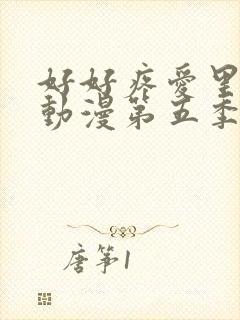 好好疼愛里
動漫第五季
唐箏1